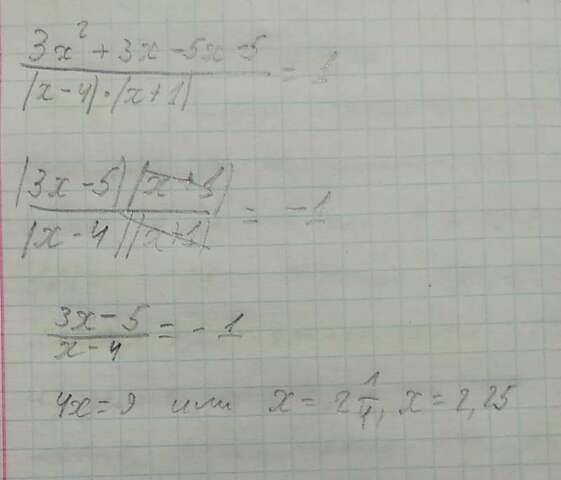 3x² + 3x - 5x - 5 / (x-4)·(x+1) = 1
(3x-5)(x+1) / (x-4)(x+1) = -1
3x-5 / x-4 = -1
4x=9 или x= 2 1/4, x=2,25